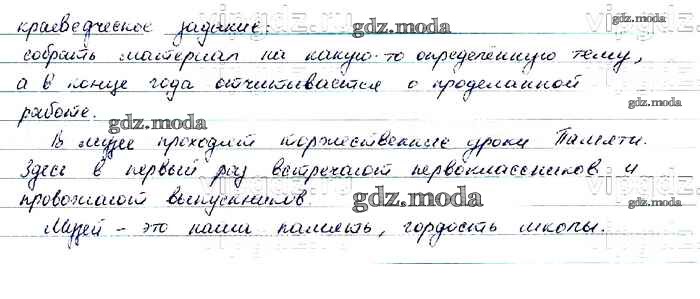 краеведческое задание:
собрать материал на какую-то определённую тему,
а в конце года отчитывается о проделанной
работе.
В музее проходят торжественные уроки Памяти.
Здесь в первый раз встречают первоклассников и
провожают выпускников.
Музей – это наша память, гордость школы.
gdz.moda
gdz.moda
gdz.moda
gdz.moda
gdz.moda
gdz.moda
vipgdz.ru